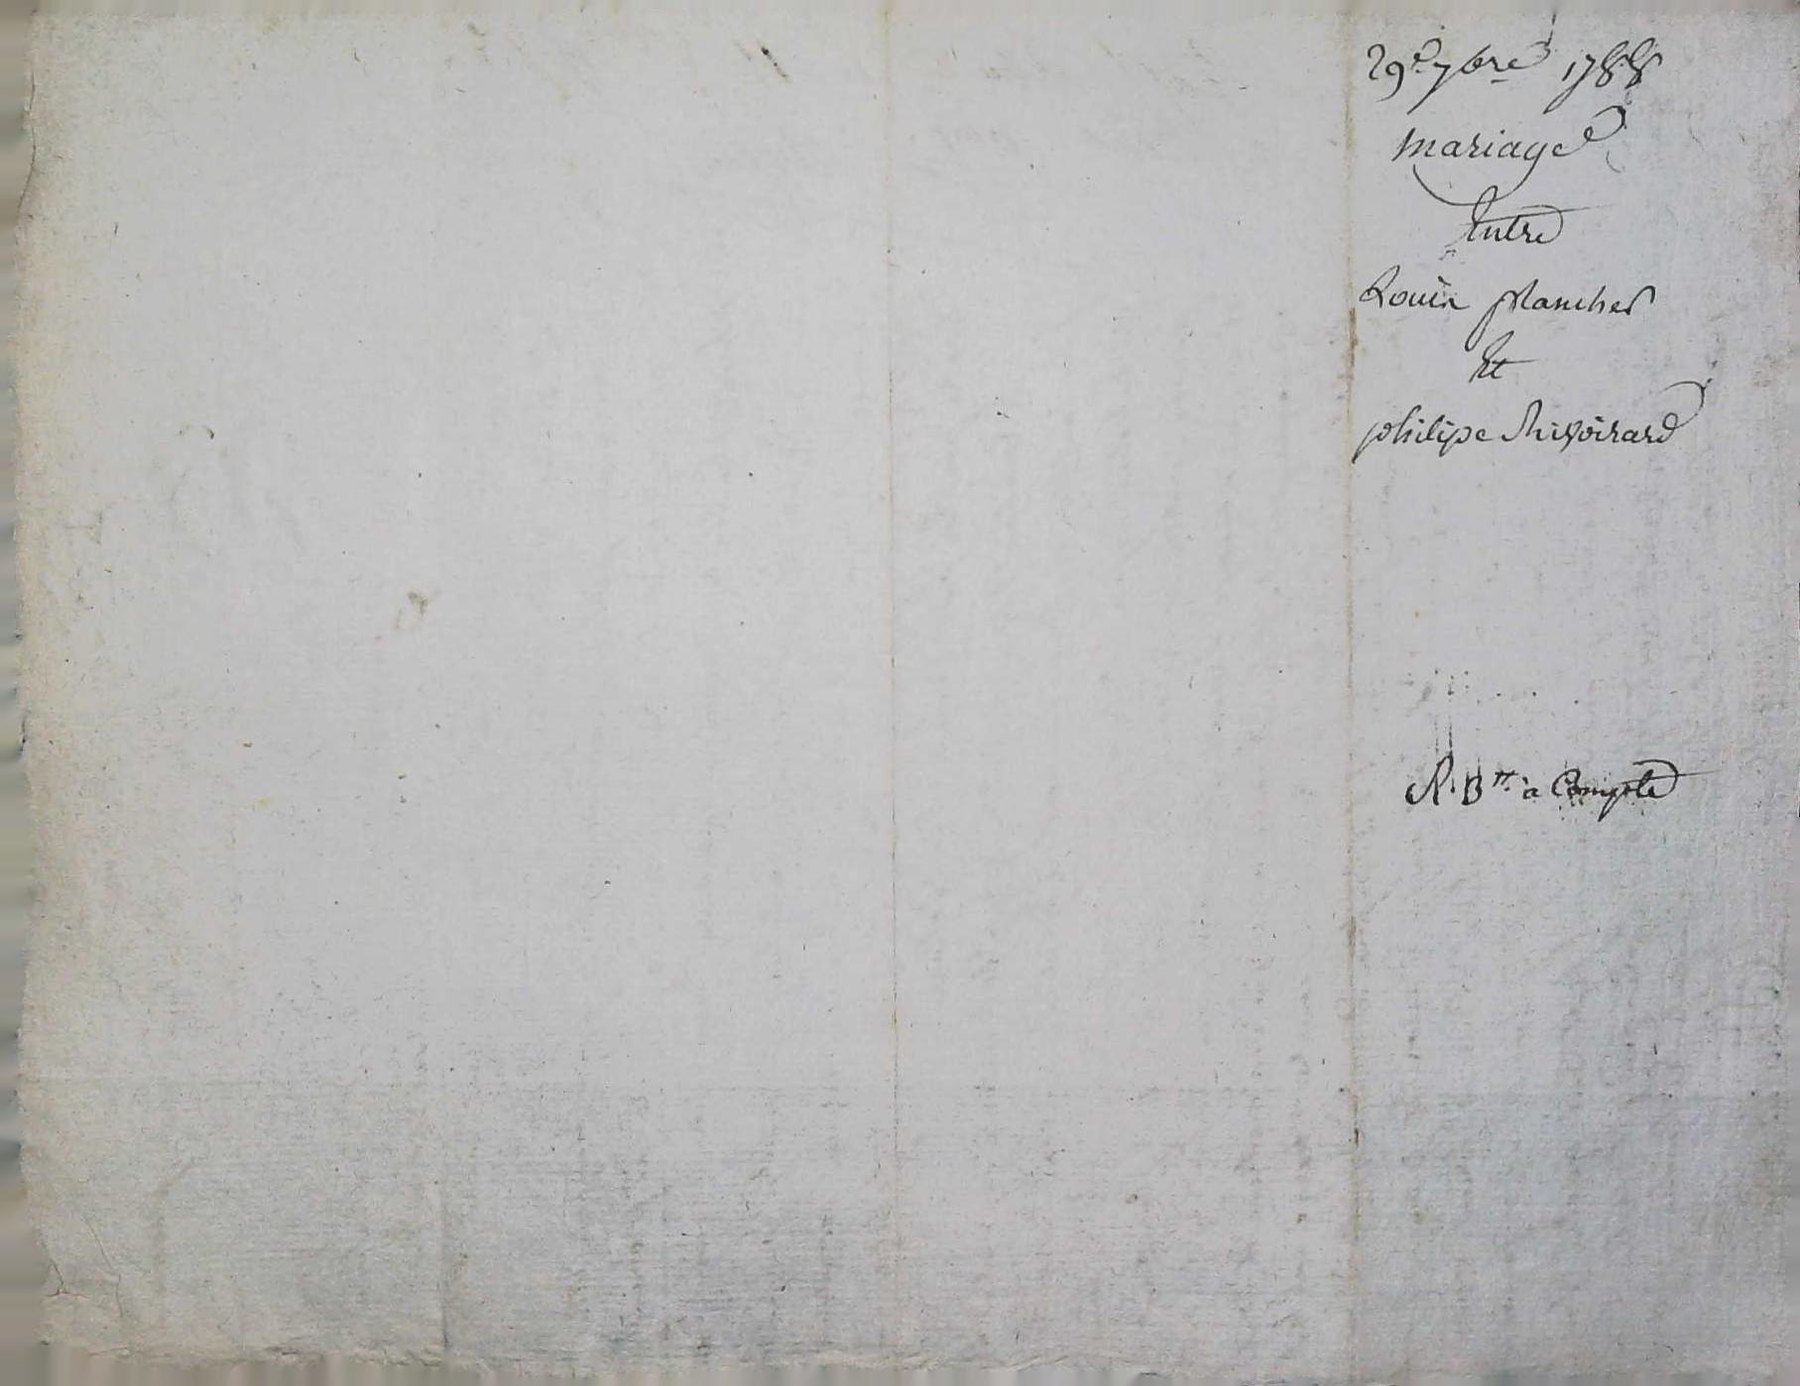 29e 7bre 1788
mariage
Entre
Louis planches
Et
philipe Rivoirard
R. 13tt à Compte